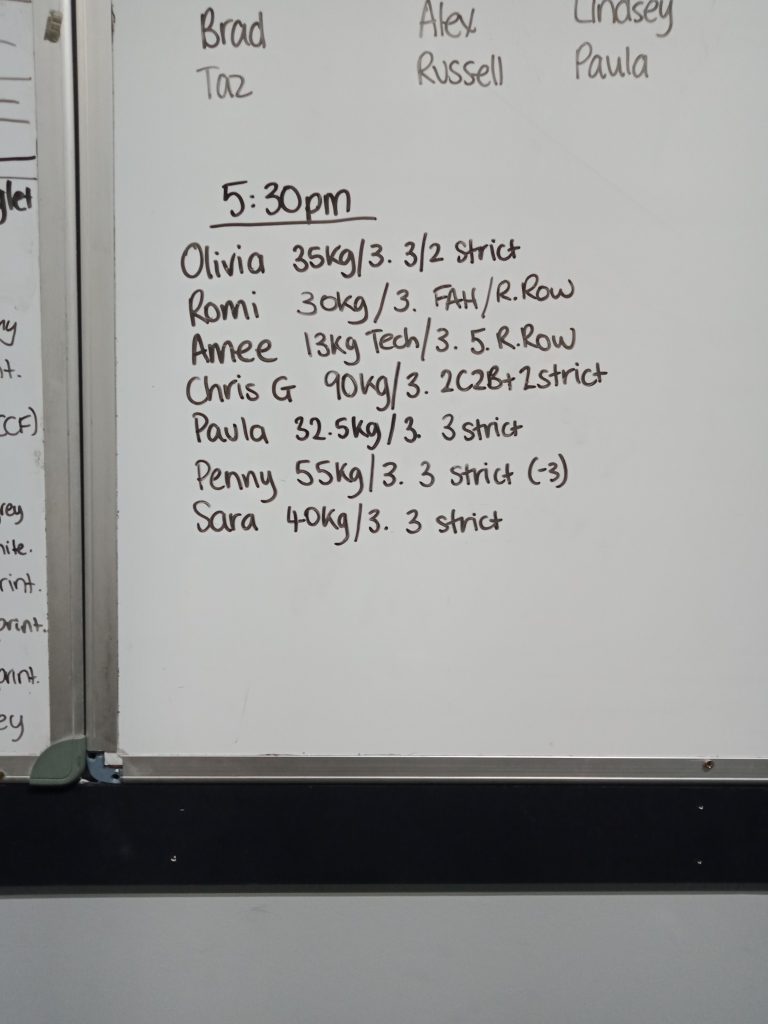 Brad Alex Lindsey
Taz Russell Paula
5:30pm
Olivia 35kg/3. 3/2 strict
Romi 30kg/3. FAH/R.Row
Amee 13kg Tech/3. 5. R.Row
Chris G 90kg/3. 2C2B+2strict
Paula 32.5kg/3. 3 strict
Penny 55kg/3. 3 strict (-3)
Sara 40kg/3. 3 strict